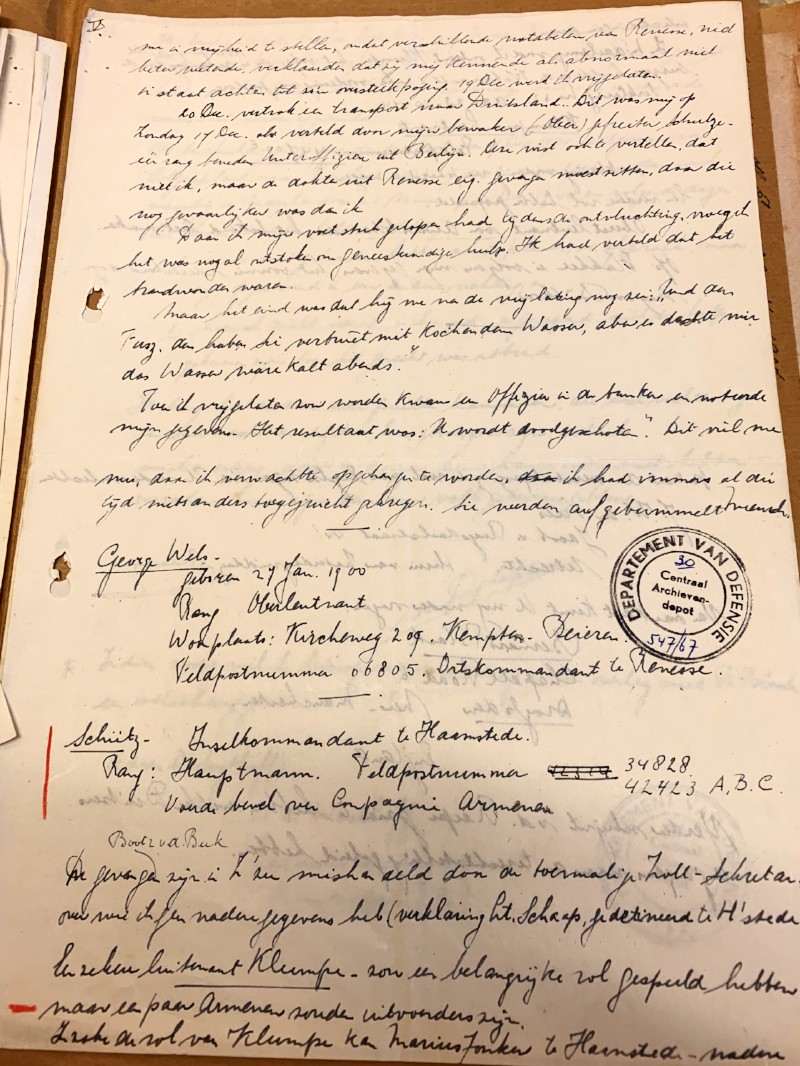 V
me in vrijheid te stellen, omdat verschillende notabelen van Renesse, niet
beter wetende, verklaarden dat zij mij kennende als abnormaal niet
in staat achten tot zoo'n oversteekpoging. 19 Dec werd ik vrijgelaten.
20 Dec. vertrok een transport naar Duitsland. Dit was mij op
Zondag 17 Dec. al verteld door mijn bewaker (Ober) gefreiter Schultze-
één rang beneden Unteroffizier uit Berlijn. Deze wist ook te vertellen, dat
niet ik, maar de dokter uit Renesse eig. gevangen moest zitten, daar die
nog gevaarlijker was dan ik
Daar ik mijn voet stuk gelopen had tijdens de ontvluchting, vroeg ik
het was nogal ontstoken om geneeskundige hulp. Ik had verteld dat het
brandwonden waren.
Maar het eind was dat hij me na de vrijlating nog zei: „Und den
Fusz. den haben Sie verbrüht mit kochendem Wasser, aber es dachte mir
das Wasser wäre kalt abends."
Toen ik vrijgelaten zou worden kwam een Offizier in de bunker en noteerde
mijn gegevens. Het resultaat was: "U wordt doodgeschoten". Dit viel me
mee, daar ik verwachtte opgehangen te worden, daar ik had immers al die
tijd niets anders toegejuicht gekregen. Sie werden aufgebummelt, Mensch.
George Wels-
geboren 27 Jan. 1900
Rang Oberleutnant
Woonplaats: Kircheweg 209. Kempten-Beieren.
Veldpostnummer 06805. Ortskommandant te Renesse.
DEPARTEMENT VAN DEFENSIE
30
Centraal
Archieven-
depot
547/67
Schütz- Inselkommandant te Haamstede.
Rang: Hauptmann. Veldpostnummer 34828
42423 A,B,C.
Voerde bevel over Compagnie Armenen
Boot v.d. Beek
De gevangen zijn in Z'zee mishandeld door de toenmalige Zoll-Sekretar.
over wie ik geen nadere gegevens heb (verklaring ht. Schaap, gedetineerd te H'stede
Een zekere luitenant Klumpe- zou een belangrijke rol gespeeld hebben
maar een paar Armenen zouden uitvoerders zijn.
Inzake de rol van Klumpe kan Marius Jonker te Haamstede- nadere